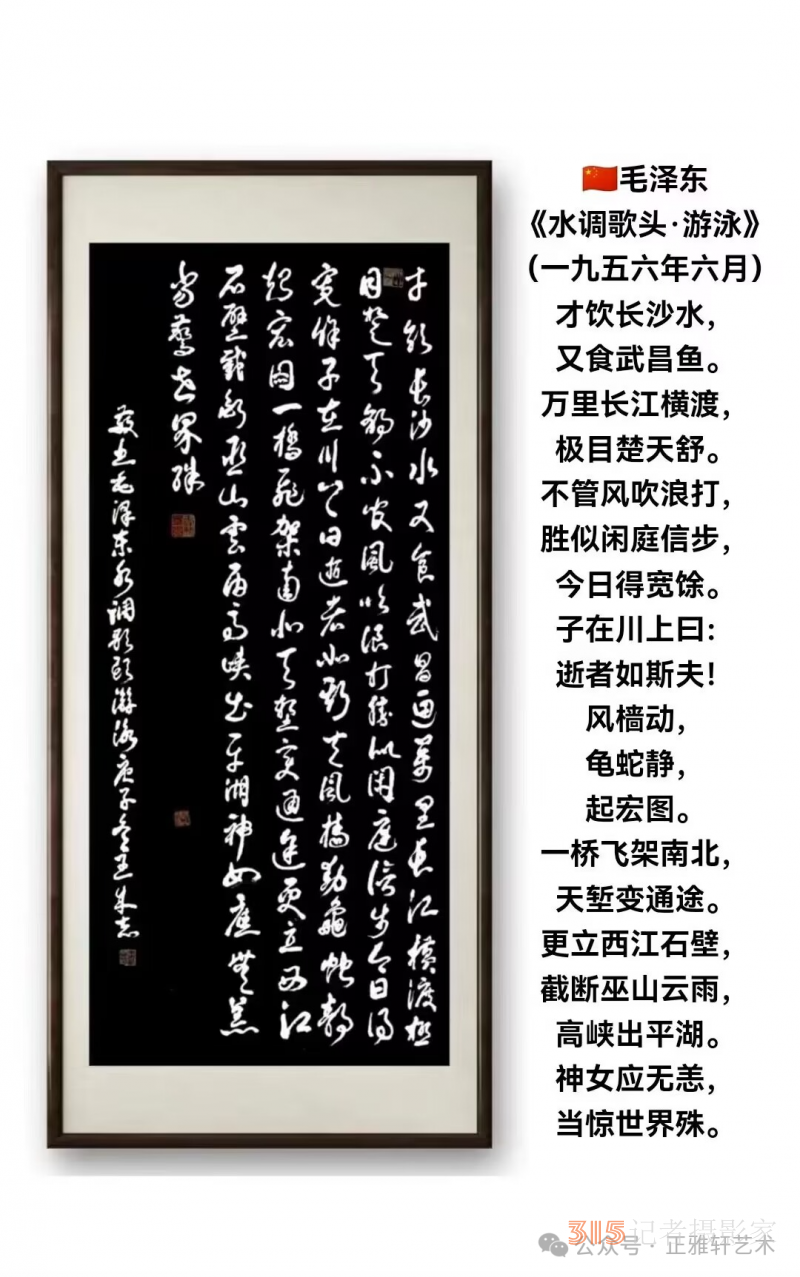 才飲長沙水又食武昌魚萬里長江橫渡極
目楚天舒不管風吹浪打勝似閑庭信步今日得
寬餘子在川上曰逝者如斯夫風檣動龜蛇靜
起宏圖一橋飛架南北天塹變通途更立西江
石壁截斷巫山雲雨高峽出平湖神女應無恙
當驚世界殊
敬書毛澤東水調歌頭游泳庚子
🇨🇳毛泽东
《水调歌头·游泳》
（一九五六年六月）
才饮长沙水，
又食武昌鱼。
万里长江横渡，
极目楚天舒。
不管风吹浪打，
胜似闲庭信步，
今日得宽馀。
子在川上曰:
逝者如斯夫!
风樯动，
龟蛇静，
起宏图。
一桥飞架南北，
天堑变通途。
更立西江石壁，
截断巫山云雨，
高峡出平湖。
神女应无恙，
当惊世界殊。
315记者摄影家
公众号 · 正雅轩艺术